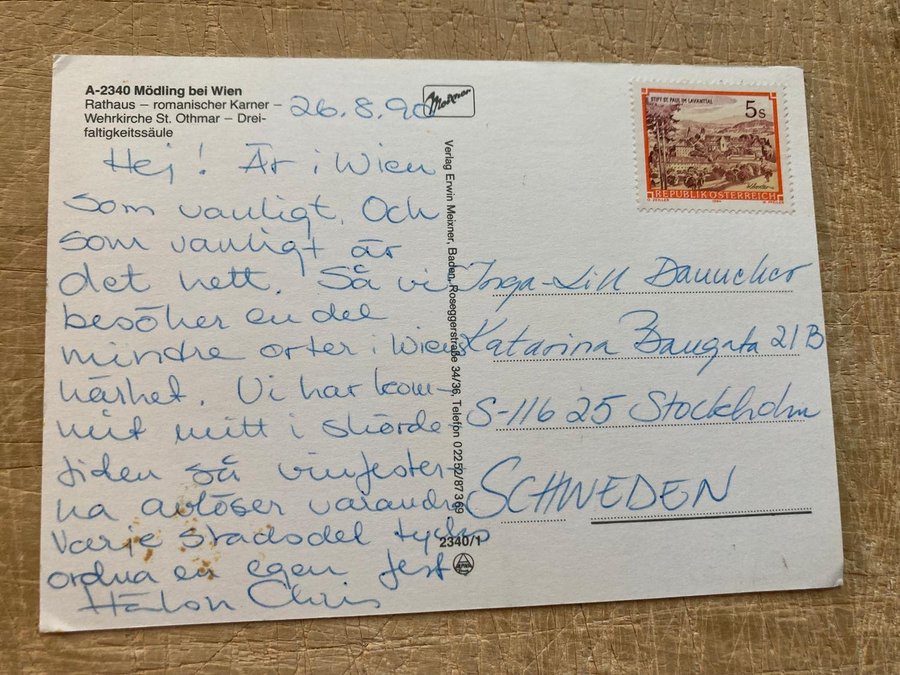 A-2340 Mödling bei Wien
Rathaus – romanischer Karner –
Wehrkirche St. Othmar – Drei-
faltigkeitssäule
Meixner
26.8.90
Hej! Är i Wien
som vanligt. Och
som vanligt är
det hett. Så vi
besöker en del
mindre orter i Wiens
närhet. Vi har kom-
mit mitt i skörde-
tiden så vinfester-
na avlöser varandra
Varje stadsdel tycks
ordna en egen fest
Chris
Verlag Erwin Meixner, Baden, Roseggerstraße 34/36, Telefon 02252/87369
2340/1
STIFT ST. PAUL IM LAVANTTAL
5s
REPUBLIK ÖSTERREICH
Inga-Lill
Katarina Bangata 21B
S-116 25 Stockholm
SCHWEDEN